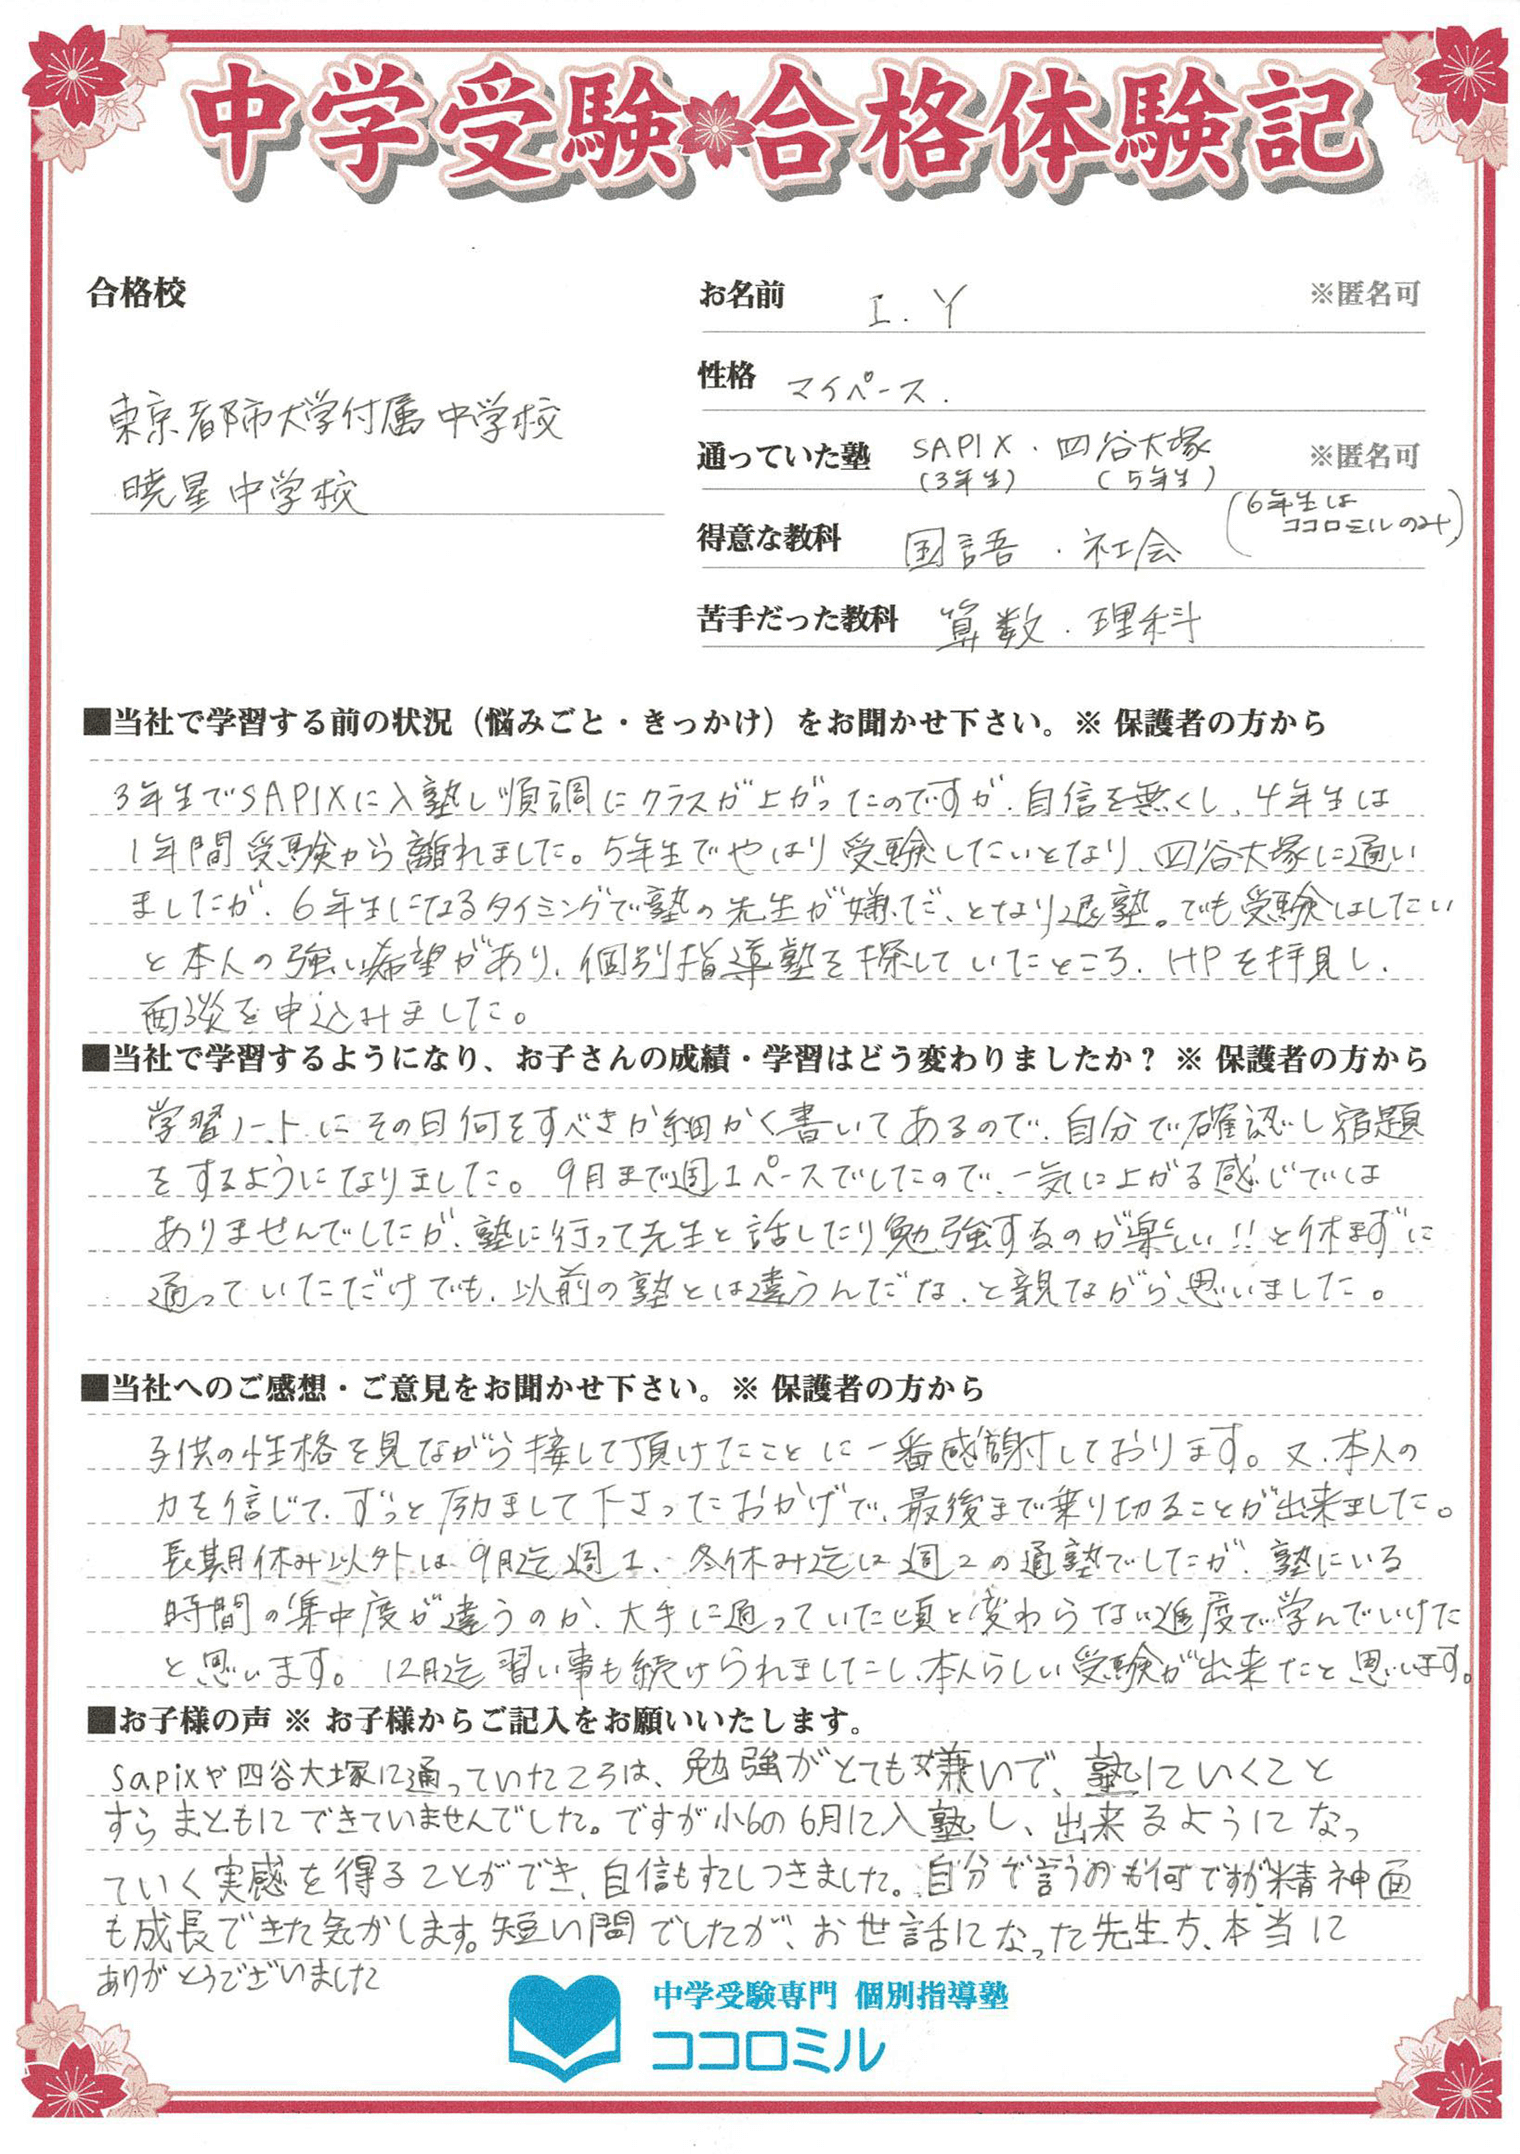 中学受験 合格体験記
合格校
東京都市大学付属中学校
暁星中学校
お名前 I.Y ※匿名可
性格 マイペース.
通っていた塾 SAPIX・四谷大塚 ※匿名可
(3年生) (5年生)
(6年生は
ココロミルのみ)
得意な教科 国語・社会
苦手だった教科 算数・理科
■当社で学習する前の状況（悩みごと・きっかけ）をお聞かせ下さい。※ 保護者の方から
3年生でSAPIXに入塾し順調にクラスが上がったのですが、自信を無くし、4年生は
1年間受験から離れました。5年生でやはり受験したいとなり、四谷大塚に通い
ましたが、6年生になるタイミングで塾の先生が嫌だ、となり退塾。でも受験はしたい
と本人の強い希望があり、個別指導塾を探していたところ、HPを拝見し、
面談を申込みました。
■当社で学習するようになり、お子さんの成績・学習はどう変わりましたか？ ※ 保護者の方から
学習ノートにその日何をすべきか細かく書いてあるので、自分で確認し宿題
をするようになりました。9月まで週1ペースでしたので、一気に上がる感じでは
ありませんでしたが、塾に行って先生と話したり勉強するのが楽しい!!と休まずに
通っていただけでも、以前の塾とは違うんだな、と親ながら思いました。
■当社へのご感想・ご意見をお聞かせ下さい。※ 保護者の方から
子供の性格を見ながら接して頂けたことに一番感謝しております。又、本人の
力を信じて、ずっと励まして下さったおかげで、最後まで乗り切ることが出来ました。
長期休み以外は9月迄週1、冬休み迄は週2の通塾でしたが、塾にいる
時間の集中度が違うのか、大手に通っていた頃と変わらない進度で学んでいけた
と思います。12月迄習い事も続けられましたし、本人らしい受験が出来たと思います。
■お子様の声 ※ お子様からご記入をお願いいたします。
Sapixや四谷大塚に通っていたころは、勉強がとても嫌いで、塾にいくこと
すらまともにできていませんでした。ですが小6の6月に入塾し、出来るようになっ
ていく実感を得ることができ、自信もすこしつきました。自分で言うのも何ですが精神面
も成長できた気がします。短い間でしたが、お世話になった先生方、本当に
ありがとうございました
中学受験専門 個別指導塾
ココロミル